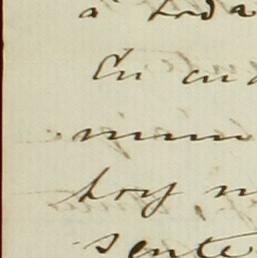 a toda
En cua
mun
hoy n
sente